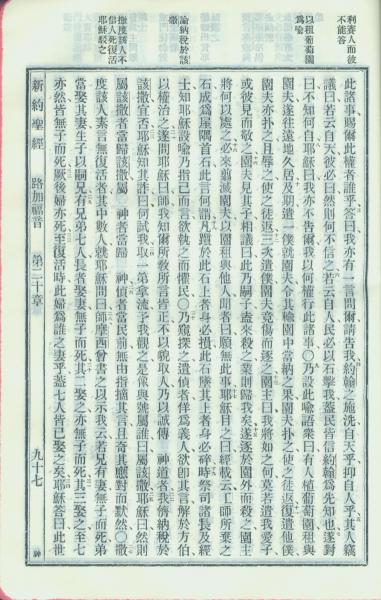 利賽人而彼
不能答
以租葡萄園
為喻
論納稅於該
撒
撒度該人不
信人死復活
耶穌駁之
此諸事賜爾此權者誰乎答曰我亦有一言問爾請告我約翰之施洗自天乎抑自人乎其人竊
議曰若云自天彼必曰然則何不信之若云自人民必以石擊我蓋民皆信約翰為先知也遂對
曰不知何自耶穌曰我亦不告爾我以何權行此諸事○乃設此喻語眾曰有人植葡萄園租與
園夫遂往遠地久居及期遣一僕就園夫令其輸園中當納之果園夫扑之使之徒返復遣他僕
園夫亦扑之且辱之使之徒返三次遣僕園夫竟傷而逐之園主曰我將如之何莫若遣我愛子
或彼見而敬之園夫見其子相議曰此乃嗣子盍來殺之業則歸我矣遂逐於園外而殺之園主
將何以處之必來翦滅園夫以園租與他人聞者曰願無此事耶穌目之曰經載云工師所棄之
石成為屋隅首石此言何謂凡躓於此石上者身必損此石墜其上者身必碎時祭司諸長及經
士知耶穌設喻乃指己而言欲執之而懼民○乃窺探之遣偵者佯為義人欲即其言解於方伯
以權治之遂問耶穌曰師我知爾所教所言皆正不以貌取人乃以誠傳 神道者我儕納稅於
該撒宜否耶穌知其詐曰何試我取一第拿流予我觀之是像與號屬誰曰屬該撒耶穌曰然則
屬該撒者當歸該撒屬 神者當歸 神偵者當民前無由指摘其言且奇其應對而默然○撒
度該人素言無復活者其中數人就耶穌問曰師摩西曾書之以示我云若兄有妻無子而死弟
當娶其妻生子以嗣兄有兄弟七人長者娶妻無子而死其二娶之亦無子而死其三娶之至七
亦然皆無子而死厥後婦亦死至復活時此婦為誰之妻乎蓋七人皆已娶之矣耶穌答曰此世
新約聖經 路加福音 第二十章 九十七 神